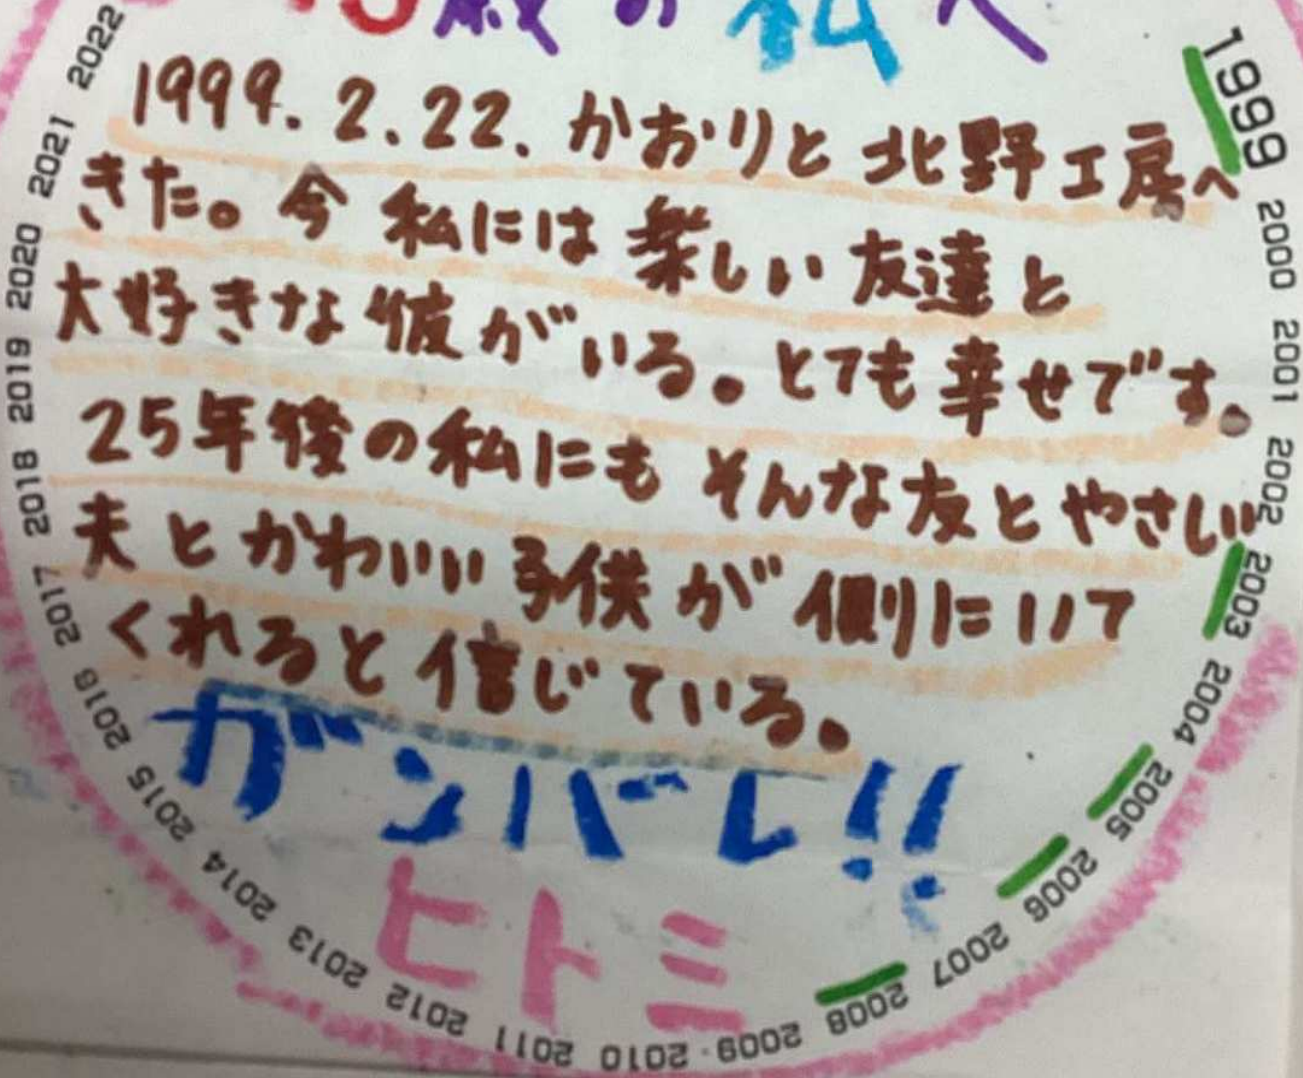 歳の私へ
1999.2.22.かおりと北野工房へ
きた。今私には楽しい友達と
大好きな彼がいる。とても幸せです。
25年後の私にもそんな友とやさしい
夫とかわいい子供が側にいて
くれると信じている。
ガンバレ!!
ヒトミ
1999
2000
2001
2002
2003
2004
2005
2006
2007
2008
2009
2010
2011
2012
2013
2014
2015
2016
2017
2018
2019
2020
2021
2022